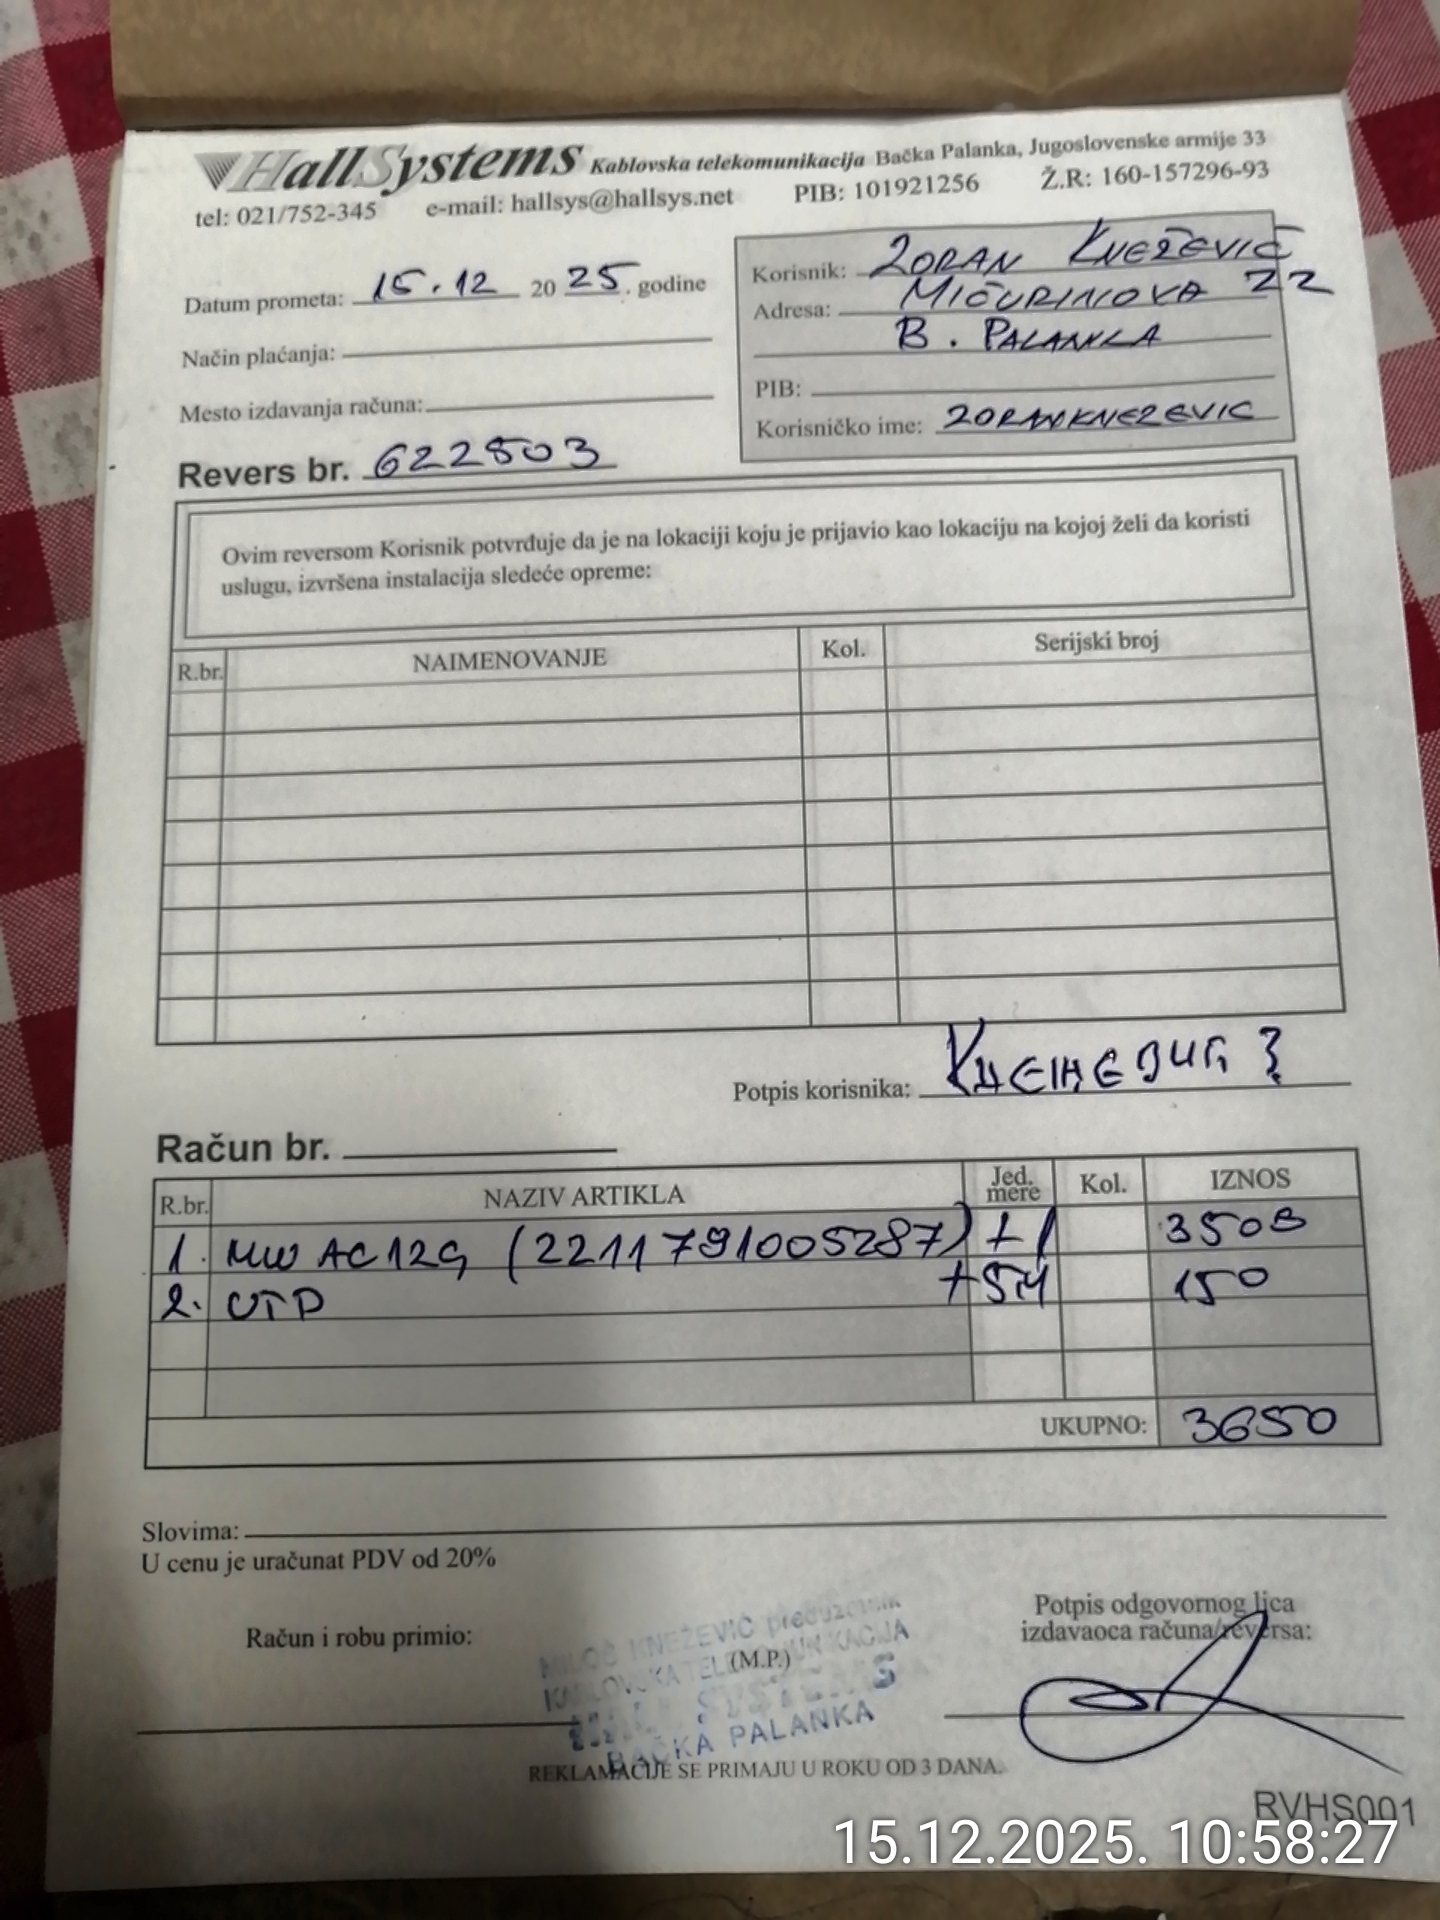 HallSystems Kablovska telekomunikacija Bačka Palanka, Jugoslovenske armije 33
tel: 021/752-345 e-mail: hallsys@hallsys.net PIB: 101921256 Ž.R: 160-157296-93
Datum prometa: 15.12 2025. godine
Način plaćanja:
Mesto izdavanja računa:
Revers br. 622503
Korisnik: ZORAN KNEŽEVIĆ
Adresa: MIČURINOVA 22
B. PALANKA
PIB:
Korisničko ime: ZORANKNEZEVIC
Ovim reversom Korisnik potvrđuje da je na lokaciji koju je prijavio kao lokaciju na kojoj želi da koristi
uslugu, izvršena instalacija sledeće opreme:
R.br. NAIMENOVANJE Kol. Serijski broj
Potpis korisnika: Кнежевић З
Račun br.
R.br. NAZIV ARTIKLA Jed. mere Kol. IZNOS
1. MW AC12G (2211791005287) +1 3500
2. UTP +5M 150
UKUPNO: 3650
Slovima:
U cenu je uračunat PDV od 20%
Račun i robu primio:
MILOŠ KNEŽEVIĆ preduzetnik
KABLOVSKA TELEKOMUNIKACIJA
(M.P.)
HALL SYSTEMS
BAČKA PALANKA
Potpis odgovornog lica
izdavaoca računa/reversa:
REKLAMACIJE SE PRIMAJU U ROKU OD 3 DANA.
RVHS001
15.12.2025. 10:58:27